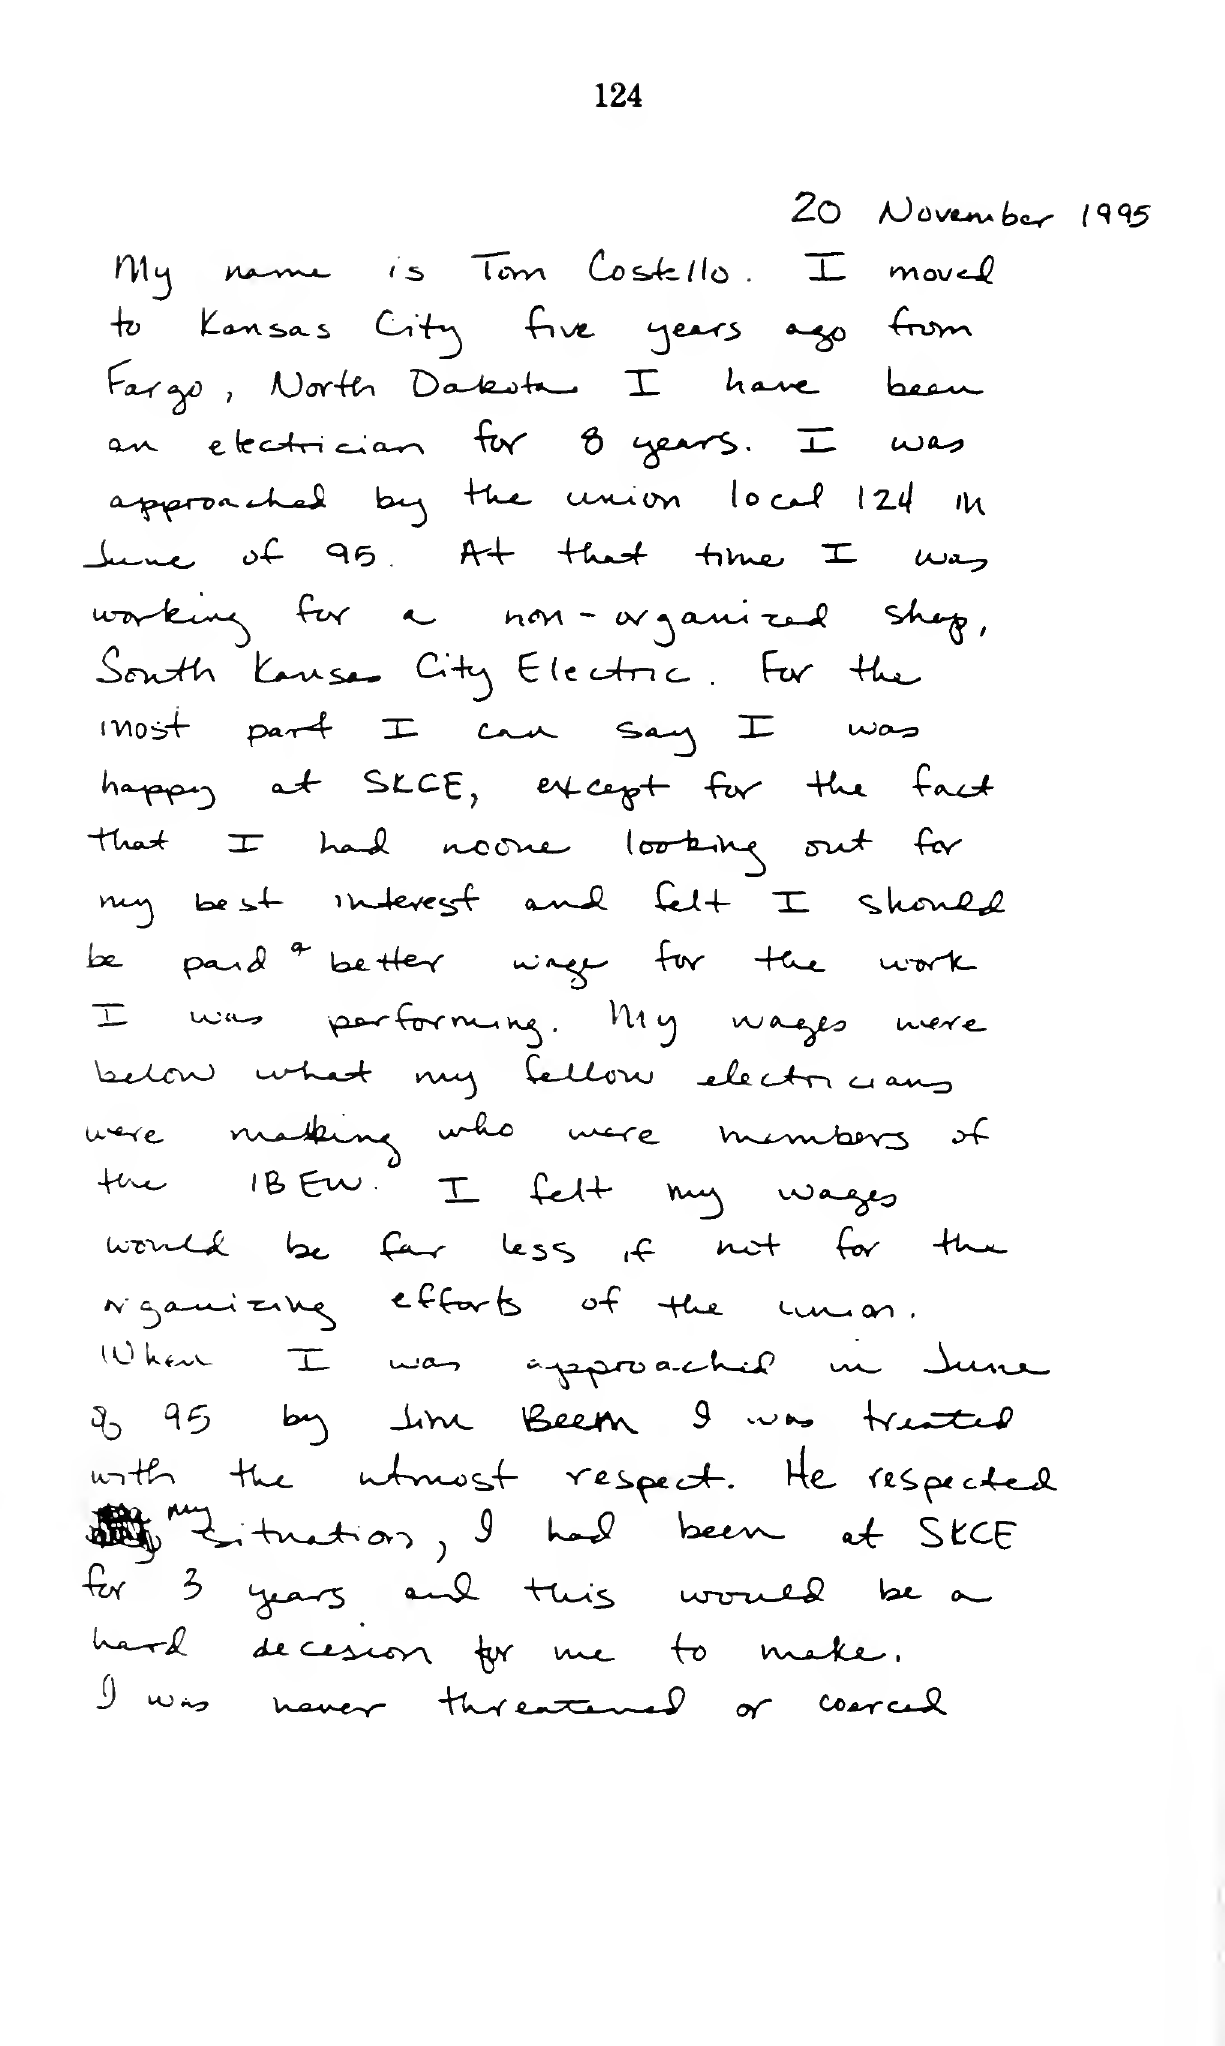 124
20 November 1995
My name is Tom Costello. I moved
to Kansas City five years ago from
Fargo, North Dakota I have been
an electrician for 8 years. I was
approached by the union local 124 in
June of 95. At that time I was
working for a non-organized shop,
South Kansas City Electric. For the
most part I can say I was
happy at SKCE, except for the fact
that I had noone looking out for
my best interest and felt I should
be paid a better wage for the work
I was performing. My wages were
below what my fellow electricians
were making who were members of
the IBEW. I felt my wages
would be far less if not for the
organizing efforts of the union.
When I was approached in June
of 95 by Jim Beem I was treated
with the utmost respect. He respected
my situation, I had been at SKCE
for 3 years and this would be a
hard decesion for me to make.
I was never threatened or coerced